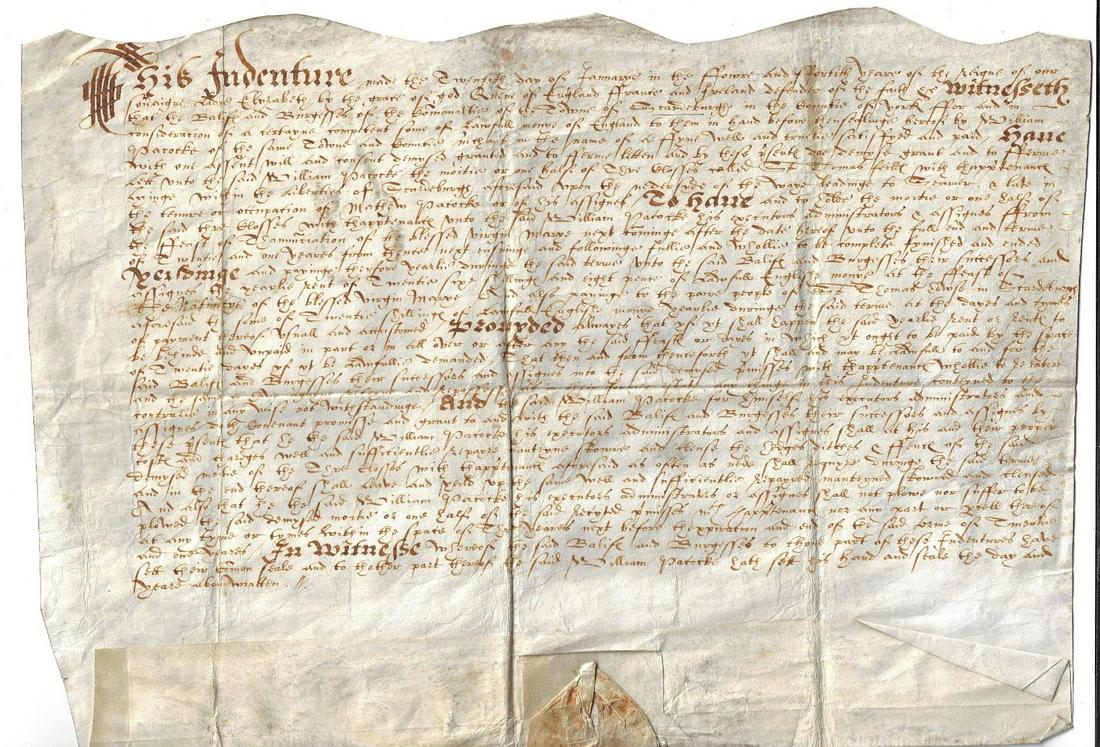 This Indenture made the Twentith day of Januarye in the ffowre and ffortith yeare of the Reigne of our
Ladye Elyzabeth by the grace of god Quene of England ffraunce and Ireland defender of the faith &c Witnesseth
that the Balife and Burgesses of the Comonaltie of the Towne of in the Countie of york ffor and in
consideration of a certayne competent some of Lawfull monye of England to them in hand before thensealinge hereof by William
Pacocke of the same Towne and Countie in the name of a ffyne well and trulie and paid Haue
with one assent will and consent demysed graunted and to fferme letten and by these psents do demise graunt and to fferme
lett vnto the said William Pacocke the moitie or one halfe of Thre Closses called with thapptennances
lyinge within the Liberties of aforesaid vpon the of the waye leadinge to late in
the tenure or occupation of Mathew Pacocke or of his assignes To haue and to hold the moitie or one halfe of
the said thre Closses with thapptennances vnto the said William Pacocke his executors administrators & assignes ffrom
the ffeast of Thannunciation of the blessed virgin Marye next cominge after the date hereof vnto the full end and terme
of Twentie and one yeares from thence next and followinge fullie and whollie to be complete fynished and ended
Yeildinge and payinge therfore yearlie duringe the said terme vnto the said Balife and Burgesses their successors and
assignes yearlie rent of Twentie six shillings and eight pence of Lawfull English monye at the ffeast of
of the blessed Virgin Marye And also payinge to the poore people of
aforesaid the some of Twentie shillings of Lawfull Englishe monye yearlie duringe the said terme at the dayes and tymes
of payment hereof vsuall and accustomed Prouyded alwayes that yf yt shall happen the said yearlie rent or rents to
be behinde and vnpaid in part or in all over or after any the said ffeasts or dayes in which yt ought to be paid by the space
of Twentie dayes yf yt be Lawfullie demanded That then and from thenceforth yt shall and may be Lawfull to and for the
said Balife and Burgesses their successors and assignes into the said demysed pmisses with thapptennances whollie to
and the same any thinge in this Indenture conteyned to the
contrarie in any wise notwithstandinge And the said William Pacocke for himselfe his executors administrators and
assignes doth Covenant promisse and grant to and with the said Balife and Burgesses their successors and assignes by
these psents that he the said William Pacocke his executors administrators and assignes shall at his and their proper
costs and charges well and sufficientlie repayre manteyne skowre and clense the hedges ditches & ffences of the said
demysed moitie of the Thre Closses with thapptennances aforesaid as often as nede shall require duringe the said terme
and in the end thereof shall leave and yeild vp the same well and sufficientlie repayred manteyned skowred and clensed
And also that he the said William Pacocke his executors administrators or assignes shall not plowe nor suffer to be
plowed the said demysed moitie or one halfe of the said recyted pmisses wth thapptennances nor any part or pcell thereof
at any tyme or tymes within the space of Thre yeares next before thexpiration and end of the said terme of Twentie
and one yeares In Witnesse whereof the said Balife and Burgesses to thone part of these Indentures have
sett their Comon seale and to thother part thereof the said William Pacocke hath sett his hand and seale the day and
yeare abovewritten